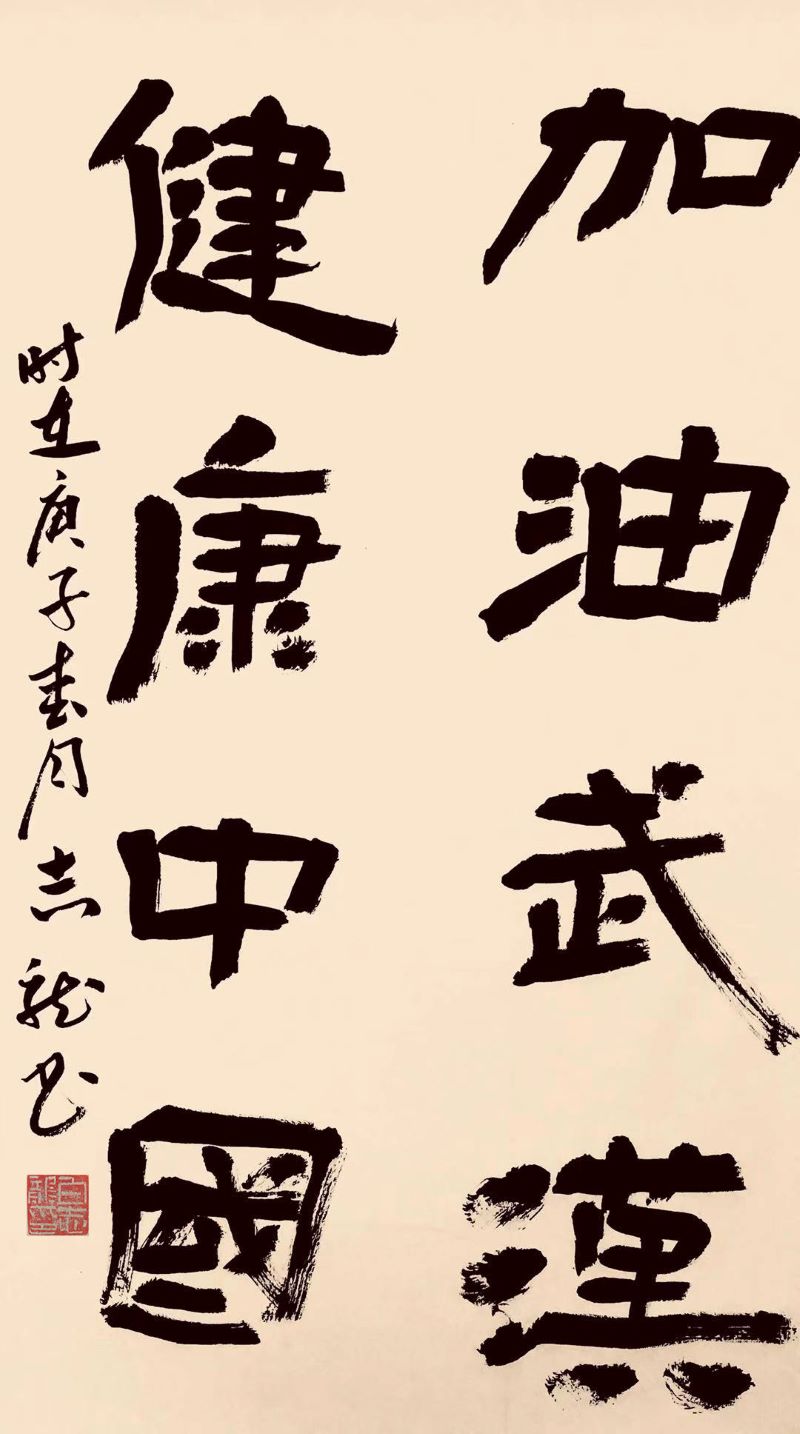 加油武漢
健康中國
时在庚子春月志龙书